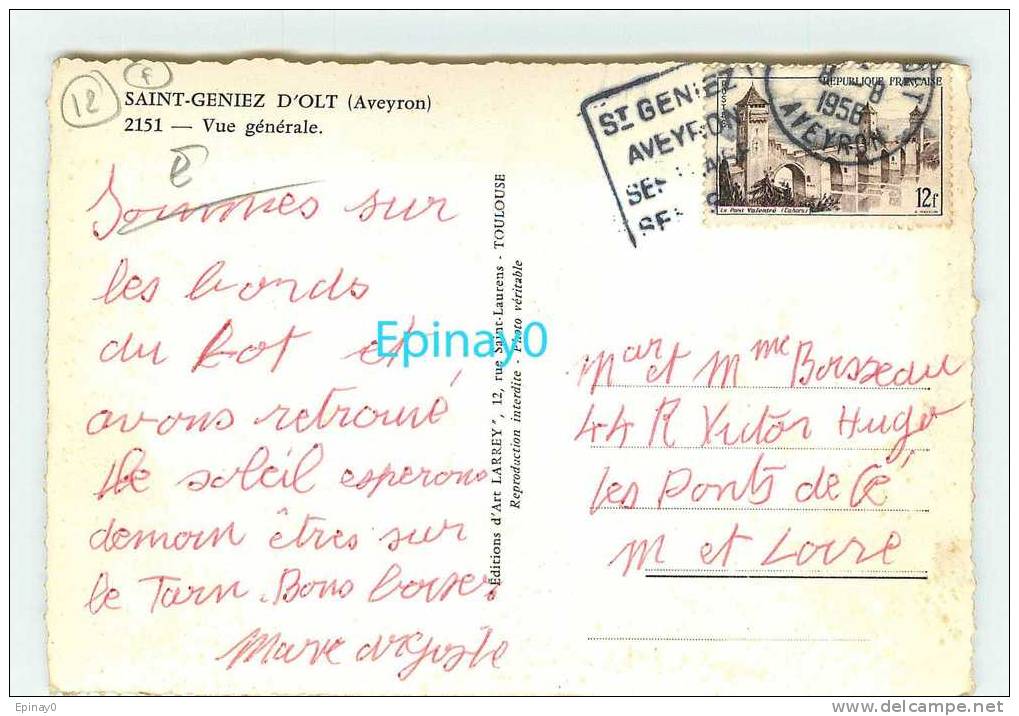 12
SAINT-GENIEZ D'OLT (Aveyron)
2151 — Vue générale.
Sommes sur
les bords
du Lot et
avons retrouvé
le soleil esperons
demain êtres sur
le Tarn. Bons baisers
Editions d'Art LARREY, 12, rue Saint-Laurens - TOULOUSE
Reproduction interdite - Photo véritable
ST GENIEZ
AVEYRON
1958
AVEYRON
REPUBLIQUE FRANÇAISE
POSTES
Le Pont Valentré (Cahors)
12f
Mar et Mme Boisseau
44 R Victor Hugo
Les Ponts de Cé
M et Loire
Epinay0
Epinay0
delcampe.net